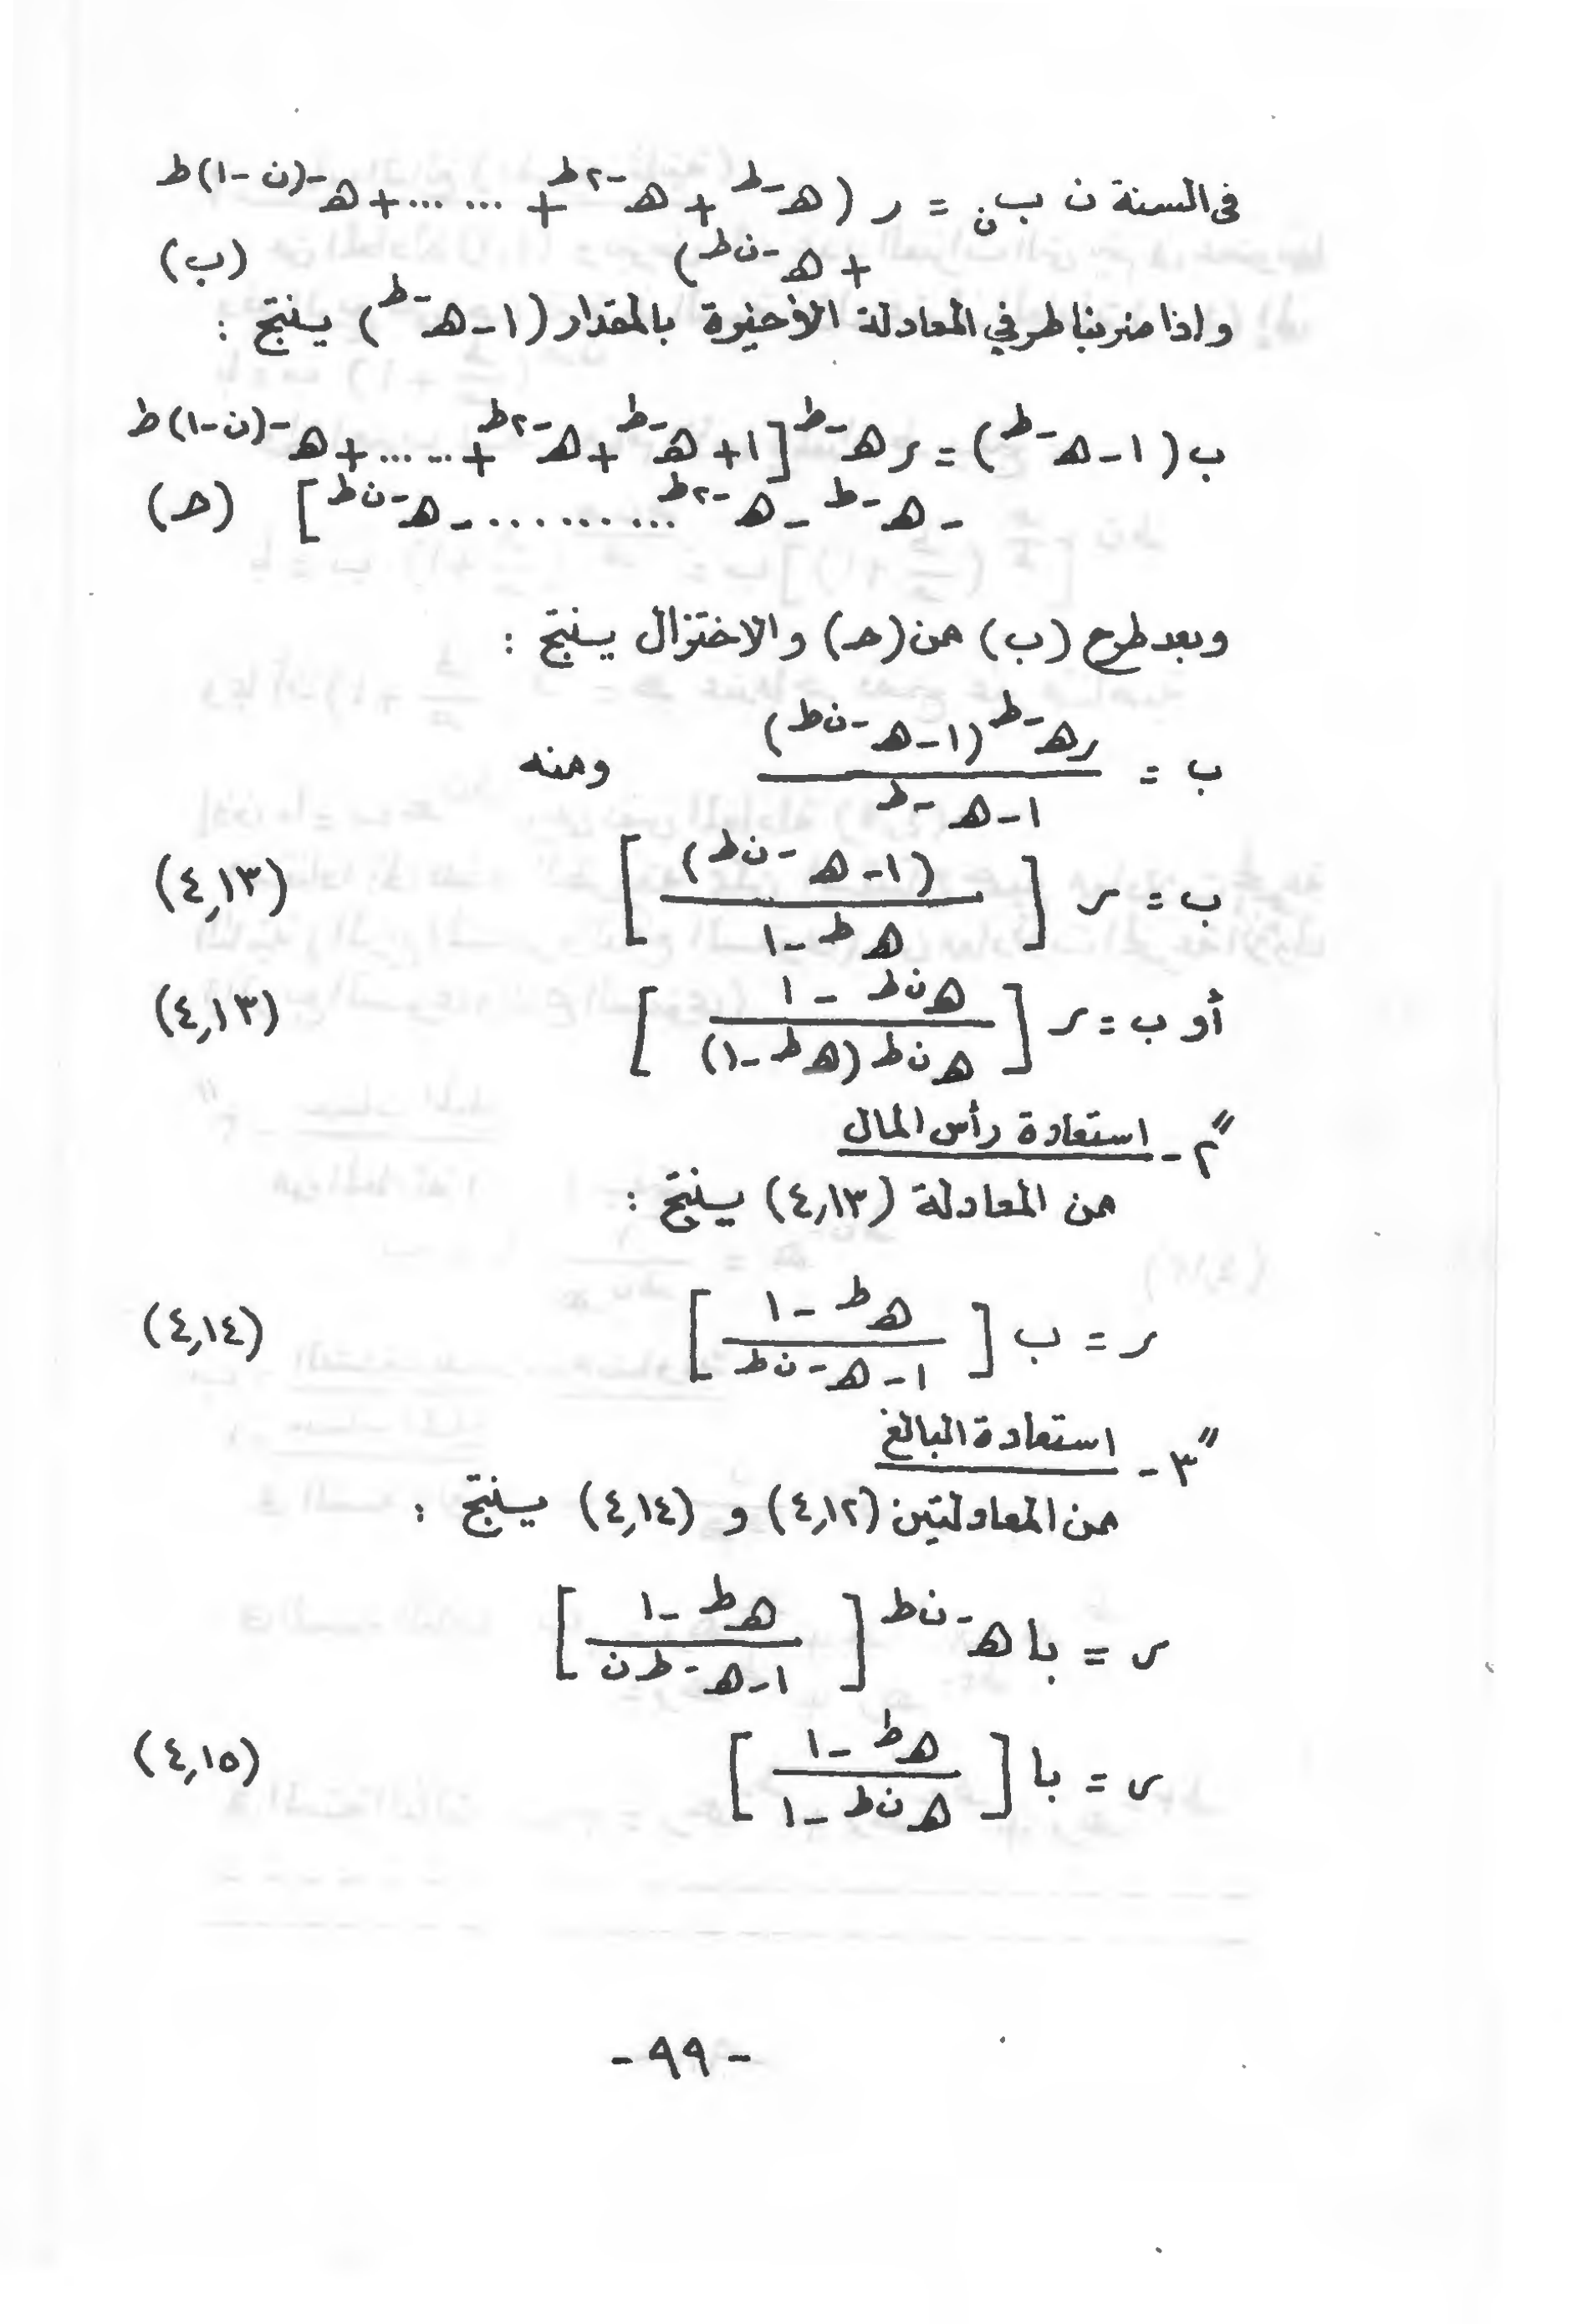 في السنة ن بن = ر (هـ^-ط + هـ^-٢ط + ... ... + هـ^-(ن-١)ط
+ هـ^-ن ط) (ب)
واذا ضربنا طرفي المعادلة الأخيرة بالمقدار (١-هـ^-ط) ينتج :
ب (١-هـ^-ط) = ر هـ^-ط [١+ هـ^-ط + هـ^-٢ط + ... .. + هـ^-(ن-١)ط
- هـ^-ط - هـ^-٢ط ... ...... - هـ^-ن ط] (حـ)
وبعد طرح (ب) من (حـ) والاختزال ينتج :
ب = ر هـ^-ط (١-هـ^-ن ط) / ١-هـ^-ط ومنه
ب = ر [(١-هـ^-ن ط) / هـ^ط -١] (٤,١٣)
أو ب = ر [هـ^ن ط -١ / هـ^ن ط (هـ^ط -١)] (٤,١٣)
٢ً - استعادة رأس المال
من المعادلة (٤,١٣) ينتج :
ر = ب [هـ^ط -١ / ١-هـ^-ن ط] (٤,١٤)
٣ً - استعادة البالغ
من المعادلتين (٤,١٢) و (٤,١٤) ينتج :
ر = با هـ^-ن ط [هـ^ط -١ / ١-هـ^-ط ن]
ر = با [هـ^ط -١ / هـ^ن ط -١] (٤,١٥)
- ٩٩ -